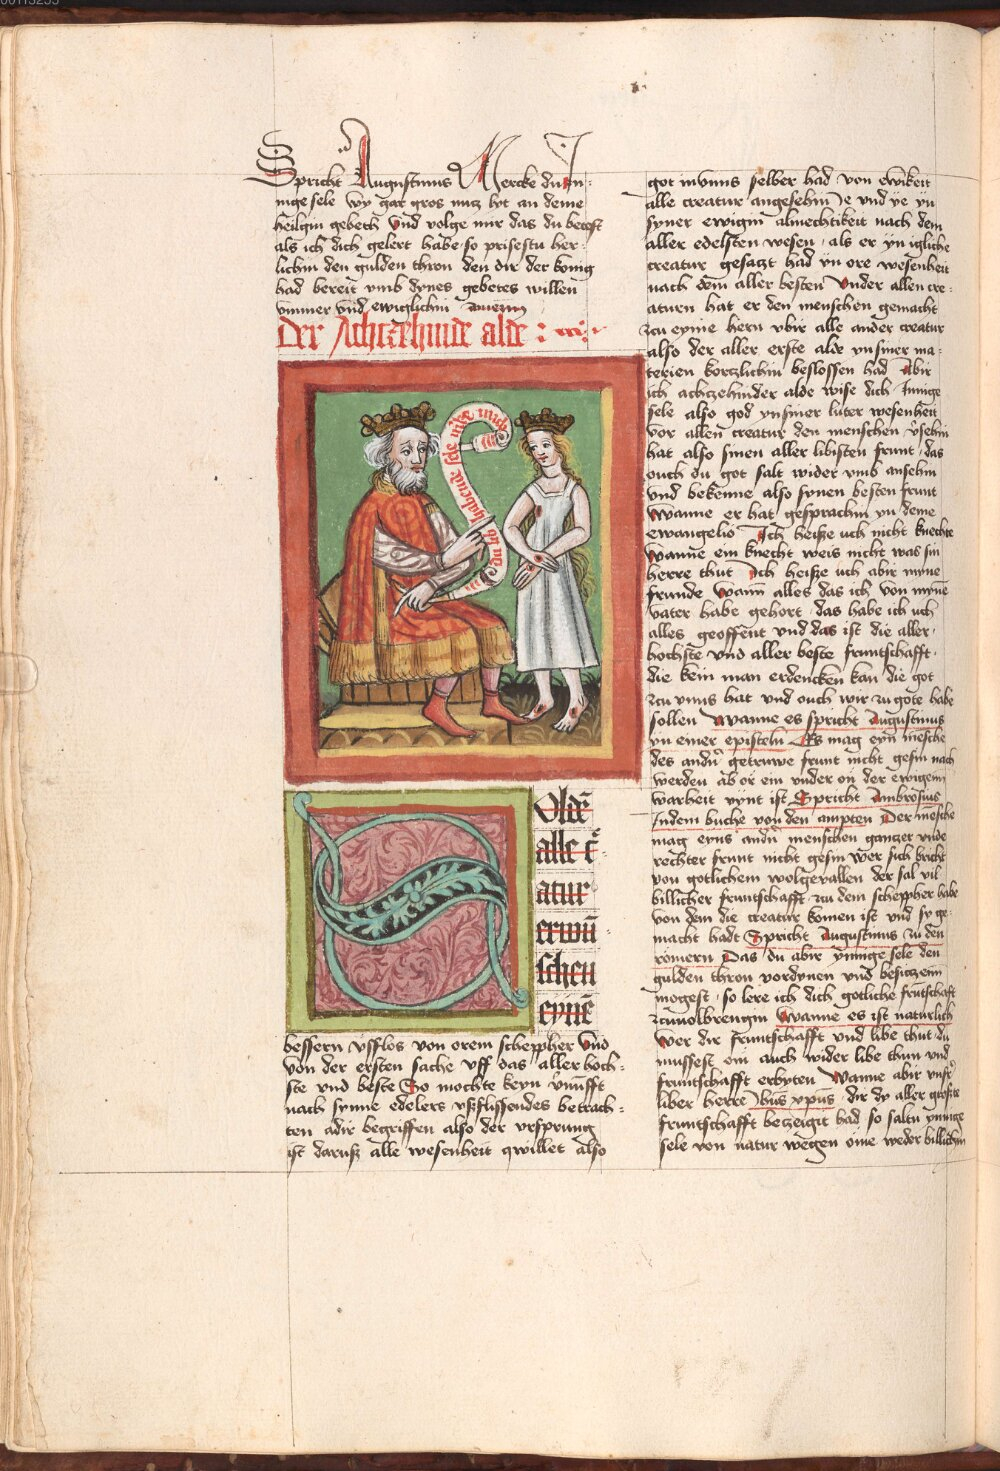 00113255
Spricht Augustinus Mercke du in-
nige sele wy gar gros nucz lyt an deme
heilgin gebeth Und volge mir das du betest
als ich dich gelert habe so prisestu her-
lichin den gulden thron den dir der konig
had bereit umb dynes gebetes willen
ymmer und ewiglichin Amen
Der Achtzehinde alde
du solt habende sele libe mich
Oldē
alle c̄
atur
erwū
schen
eynē
bessern ussflos von orem scheppher Und
von der ersten sache uff das aller hoch-
ste und beste So mochte keyn vornufft
nach synne edelers ussflissendes betrach-
ten adir begriffen also der ursprung
ist daruss alle wesenheit qwillet also
got in unns selber had von ewikeit
alle creatur angesehin Ye und ye yn
syner ewigin almechtikeit nach dem
aller edelsten wesen als er yn igliche
creatur gesatzt had yn ore wesenheit
nach dem aller besten Under allen cre-
aturen hat er den menschen gemacht
zcu eyme hern ubir alle ander creatur
also der aller erste alde yn siner ma-
terien kortzlichin beslossen had Abir
ich achtzehinder alde wise dich Innige
sele also god yn siner luter wesenheit
vor allen creatur den menschen usehin
hat also sinen aller libisten frunt das
ouch du got salt wider umb ansehin
und bekenne also synen besten frunt
Wanne er hat gesprachin yn deme
ewangelio Ich heisse uch nicht knechte
Wanne ein knecht weis nicht was sin
herre thut Ich heisse uch abir myne
frunde Wann alles das ich von mynē
vater habe gehort das habe ich uch
alles geoffent und das ist die aller
hochste und aller beste fruntschafft
die kein man erdencken kan die got
zcu unns hat und ouch wir zu gote habe
sollen Wanne es spricht Augustinus
yn einer episteln Es mag eyn mēsche
des andn̄ getruwe frunt nicht gesin nach
werden ab or ein under on der ewigem
warheit nynt ist Spricht Ambrosius
Indem buche von den ampten Der mēsche
mag eyns andn̄ menschen gantzer unde
rechter frunt nicht gesin Wer sich bricht
von gotlichem wolgevallen der sal vil
billicher fruntschafft zcu dem scheppher habe
von dem die creatur komen ist und sy ge-
macht hadt Spricht Augustinus zu den
romern Das du abir ynnige sele den
gulden thron vordynen und besitzenn
mogest so lere ich dich gotliche frūtschaft
zcuvolbrengin Wanne es ist naturlich
Wer dir fruntschafft und libe thut du
mussest om auch wider libe thun und
fruntschafft erbyten Wanne abir unsr̄
liber herre Ihūs xpūs dir dy aller groste
fruntschafft betzeigit had so saltu ynnige
sele von natur wegen ome weder billichin